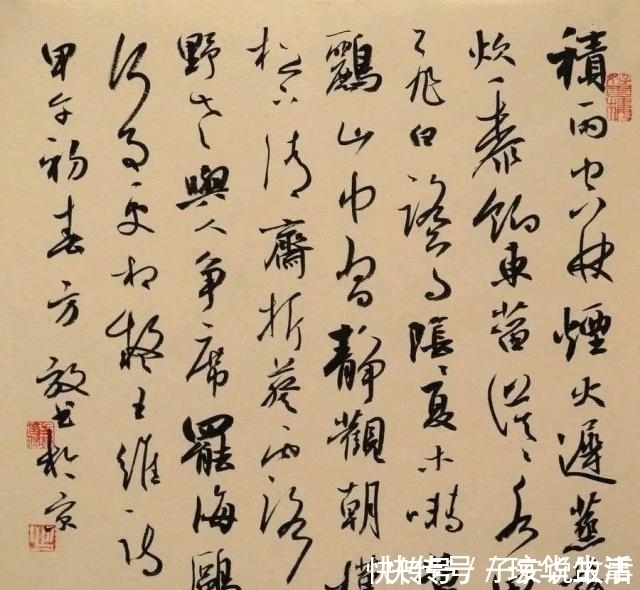 積雨空林煙火遲蒸
炊黍餉東菑漠々水
飛白鷺陰々夏木囀
鸝山中習靜觀朝槿
松下清齋折葵露
野老與人爭席罷海鷗
何事更相疑王維詩
甲午初春方書於京
快传号/生活